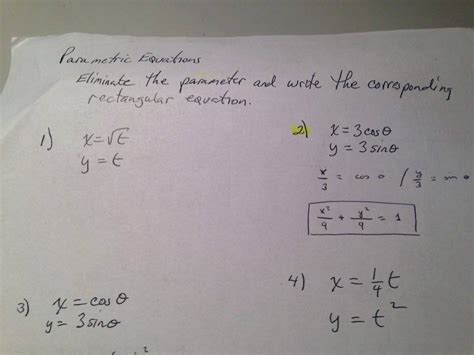 Parametric Equations
Eliminate the parameter and write the corresponding
rectangular equation.
1) x = √t
y = t
2) x = 3 cos θ
y = 3 sin θ
x/3 = cos θ / y/3 = sin θ
x²/9 + y²/9 = 1
3) x = cos θ
y = 3 sin θ
4) x = 1/4 t
y = t²